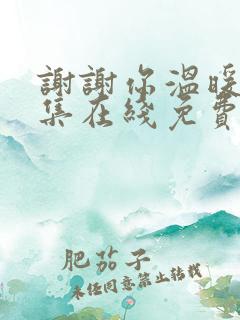 謝謝你溫暖
集在綫免費
肥茄子
未經同意禁止轉載